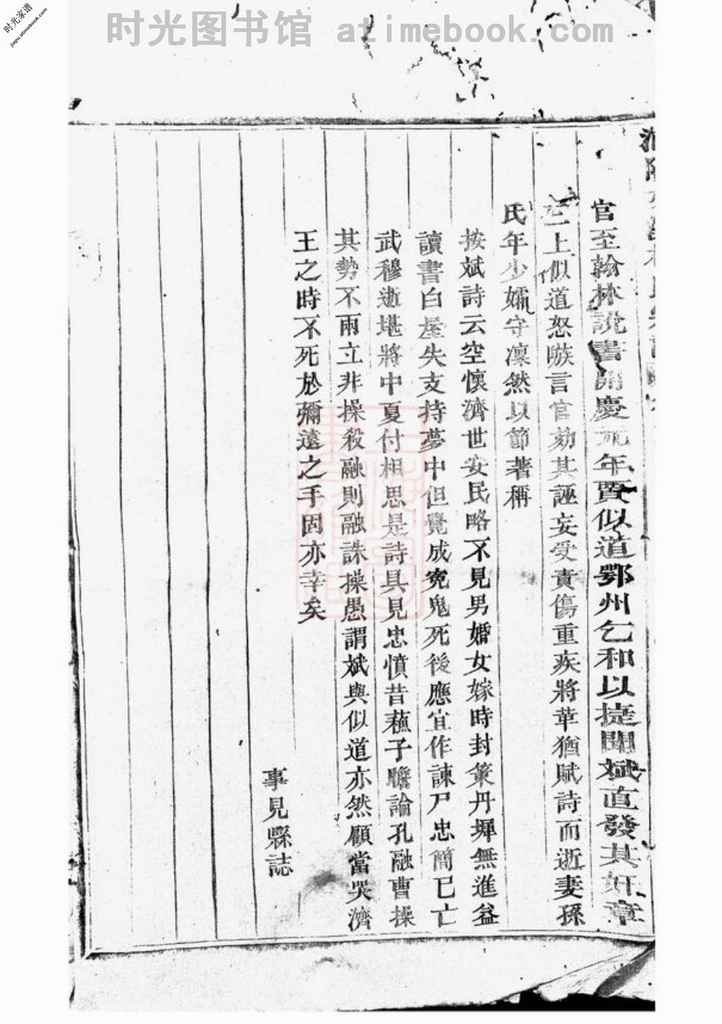 时光图书馆 atimebook.com
时光家谱
jiapu.atimebook.com
官至翰林說書開慶元年賈似道鄂州乞和以捷聞斌直發其奸章
三上似道怒嗾言官劾其誣妄受責傷重疾將革猶賦詩而逝妻孫
氏年少孀守凜然以節著稱
按斌詩云空懷濟世安民略不見男婚女嫁時封章丹墀無進益
讀書白屋失支持夢中但覺成寃鬼死後應宜作諫尸忠簡已亡
武穆逝堪將中夏付相思是詩具見忠憤昔蘓子瞻論孔融曹操
其勢不兩立非操殺融則融誅操愚謂斌與似道亦然顧當哭濟
王之時不死於彌遠之手固亦幸矣
事見縣誌